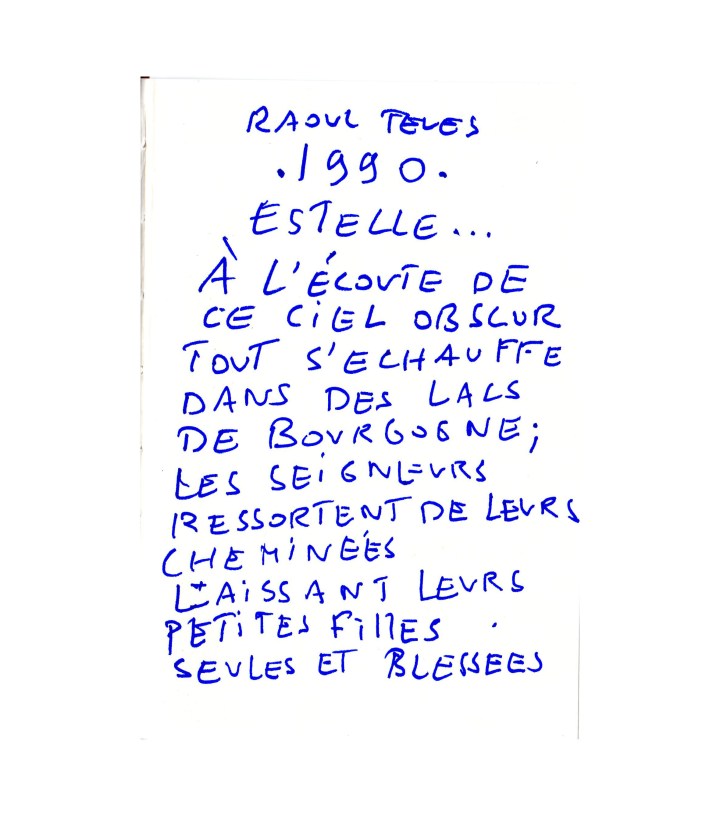 RAOUL TELES
.1990.
ESTELLE...
À L'ÉCOUTE DE
CE CIEL OBSCUR
TOUT S'ECHAUFFE
DANS DES LACS
DE BOURGOGNE;
LES SEIGNEURS
RESSORTENT DE LEURS
CHEMINÉES
LAISSANT LEURS
PETITES FILLES
SEULES ET BLESSEES